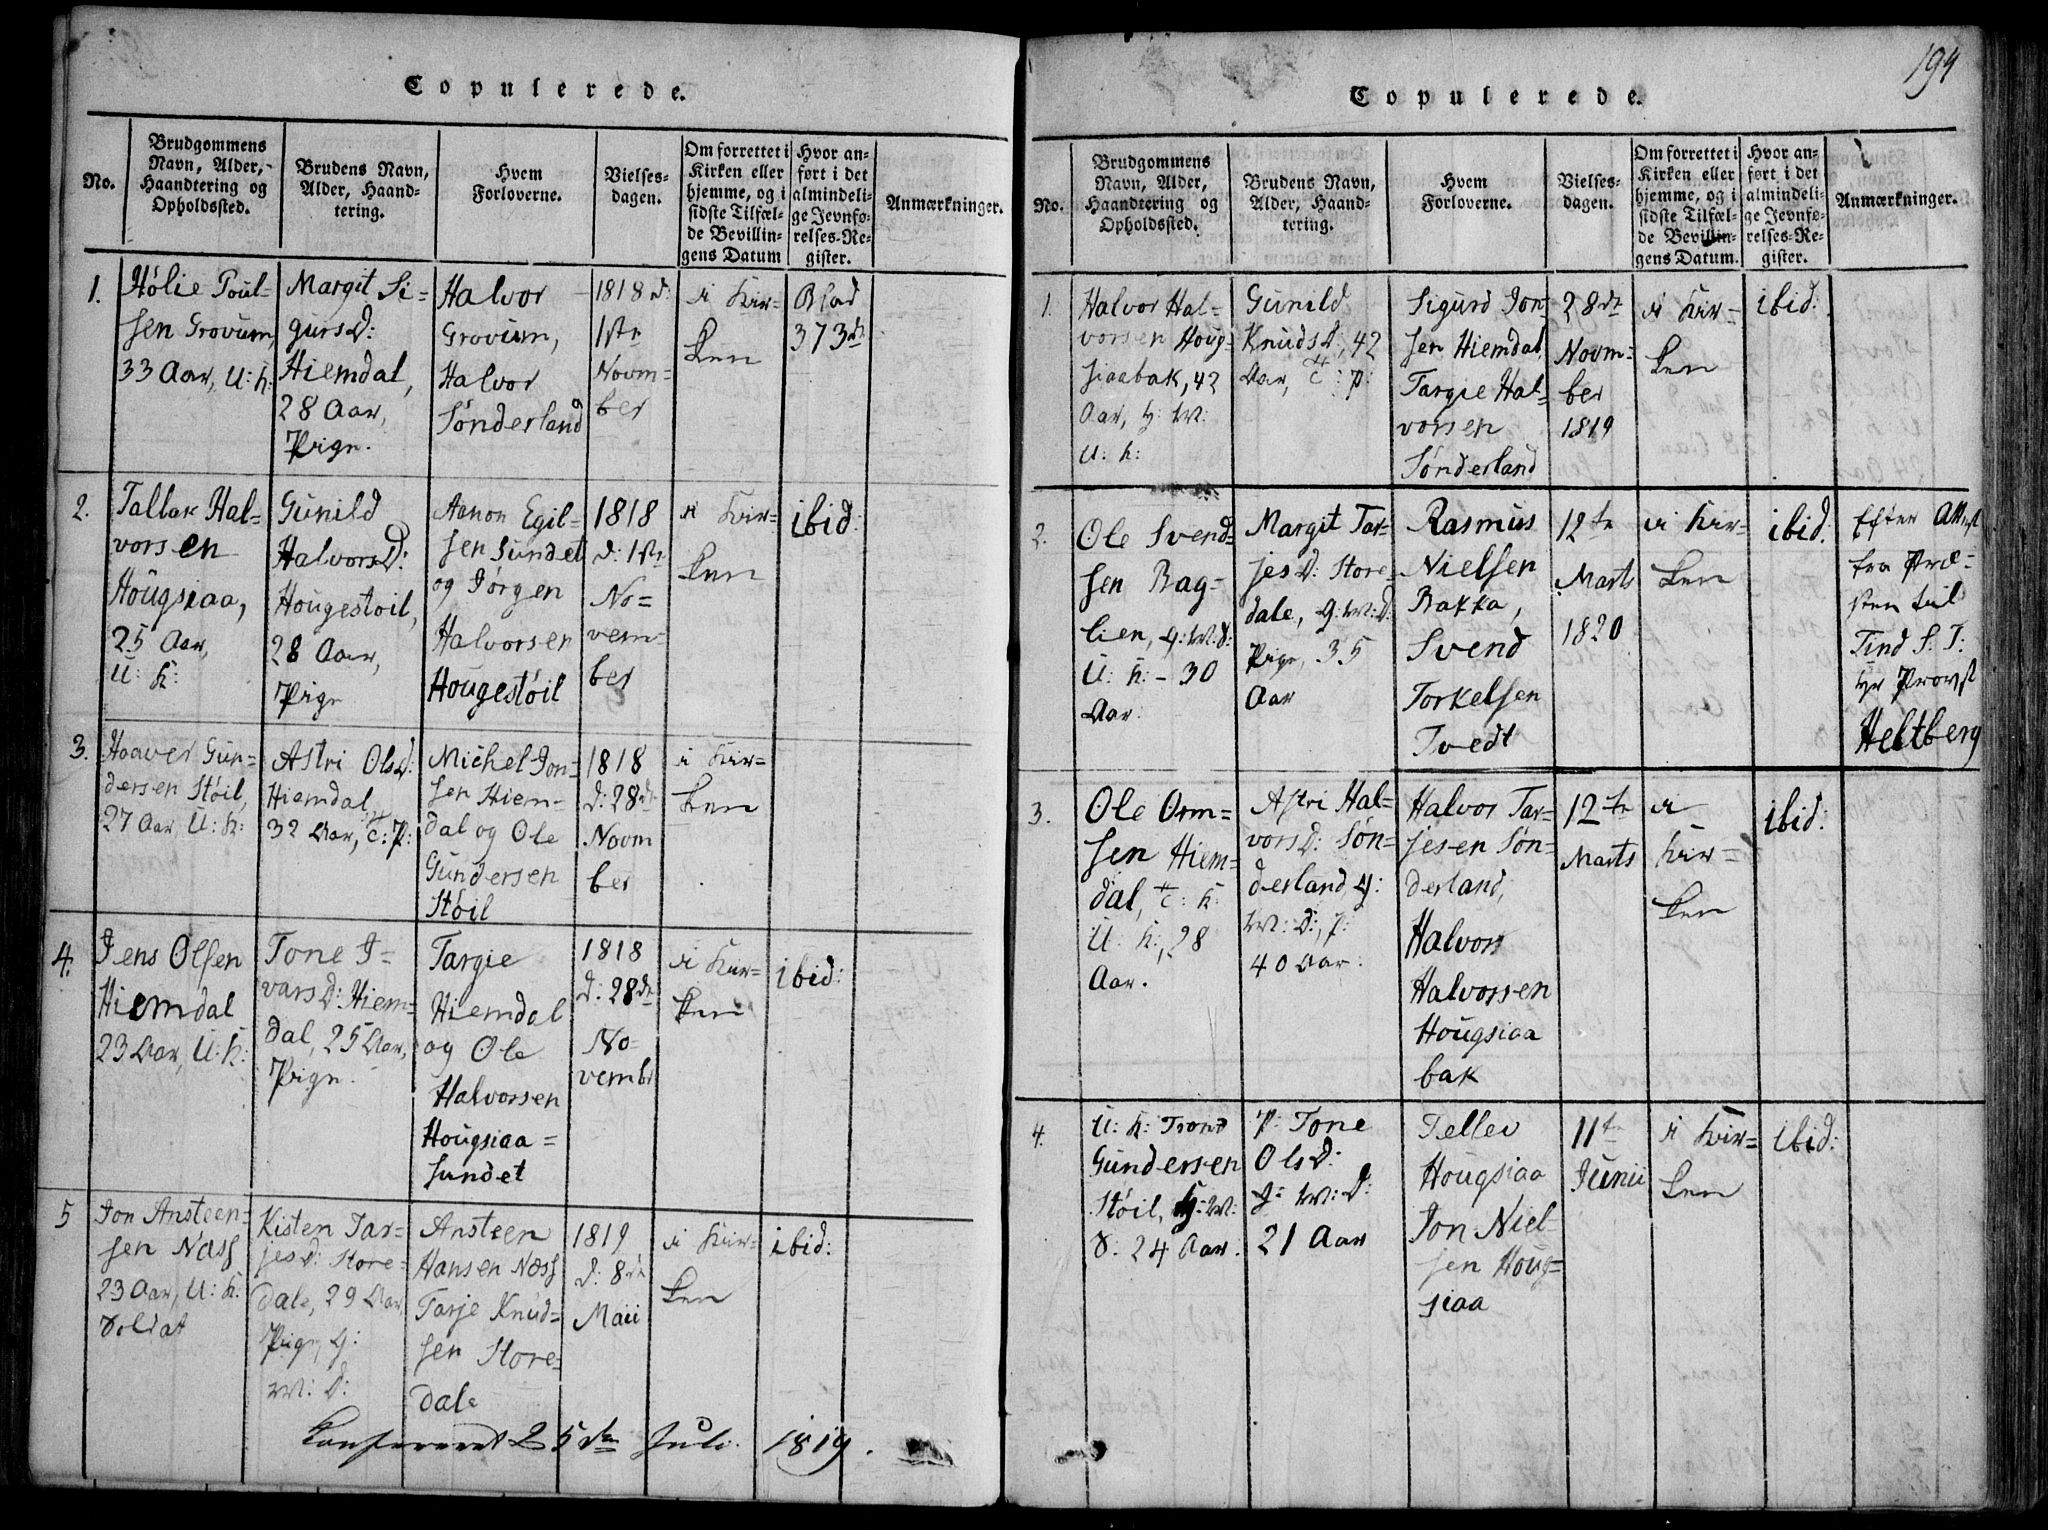 Copulerede.
No.
Brudgommens
Navn, Alder,
Haandtering og
Opholdssted.
Brudens Navn,
Alder, Haand-
tering.
Hvem
Forloverne.
Vielses-
dagen.
Om forrettet i
Kirken eller
hjemme, og i
sidste Tilfæl-
de Bevillin-
gens Datum
Hvor an-
ført i det
almindeli-
ge Jevnfø-
relses-Re-
gister.
Anmærkninger.
1.
Hôlie Poul-
sen Grovum,
33 Aar, U: K:
Margit Si-
gursD:
Hiemdal,
28 Aar,
Pige.
Halvor
Grovum,
Halvor
Sønderland
1818 d:
1ste
Novm-
ber
i Kir-
ken
Blad
373
2.
Tallak Hal-
vorsen
Hougsiaa,
25 Aar,
U: K:
Gunild
HalvorsD:
Hougestoil,
28 Aar,
Pige
Aanon Egil-
sen Sundet
og Jørgen
Halvorsen
Hougestöil
1818
d: 1ste
No-
vem-
ber
i Kir-
ken
ibid:
3.
Haaver Gun-
dersen Stóil,
27 Aar, U: K:
Astri OlsD:
Hiemdal,
32 Aar, P:
Michel Jon-
sen Hiem-
dal og Ole
Gundersen
Stóil
1818
d: 28de
Novm
ber
i Kir-
ken
4.
Jens Olsen
Hiemdal
23 Aar, U: K:
Tone I-
varsD: Hiem-
dal, 25 Aar,
Pige.
Targie
Hiemdal
og Ole
Halvorsen
Hougsiaa-
sundet
1818
d: 28de
No-
vembr
i Kir-
ken
ibid:
5
Jon Ansteen-
sen Næss
23 Aar, U: K:
Soldat
Kisten Tar-
jesD: Store-
dale, 29 Aar
Pige, G:
W: D:
Ansteen
Hansen Næss
Tarje Knud-
sen Store-
dale
1819
d: 8de
Maii
i Kir-
ken
ibid:
Confereret 25de Juli 1819.
194
Copulerede.
No.
Brudgommens
Navn, Alder,
Haandtering og
Opholdssted.
Brudens Navn,
Alder, Haand-
tering.
Hvem
Forloverne.
Vielses-
dagen.
Om forrettet i
Kirken eller
hjemme, og i
sidste Tilfæl-
de Bevillin-
gens Datum.
Hvor an-
ført i det
almindeli-
ge Jevnfø-
relses-Re-
gister.
Anmærkninger.
1.
Halvor Hal-
vorsen Houg-
siaabak, 42
Aar, G: W:
U: K:
Gunild
KnudsD:, 42
Aar, P:
Sigurd Jon-
sen Hiemdal,
Targie Hal-
vorsen
Sønderland
28de
Novm-
ber
1819
i Kir-
ken
ibid:
2.
Ole Svend-
sen Bag-
lien, G: W: D:
U: K: - 30
Aar.
Margit Tar-
jesD: Store-
dale, G: W: D:
Pige, 35
Aar
Rasmus
Nielsen
Bakka,
Svend
Torkelsen
Tvedt
12te
Marts
1820
i Kir-
ken
ibid.
Efter Attest
fra Præ-
sten til
Tind S. T:
Hr Provst
Heltberg
3.
Ole Orm-
sen Hiem-
dal, K:
U: K:, 28
Aar.
Astri Hal-
vorsD: Søn-
derland, G:
W: D:, P:
40 Aar.
Halvor Tar-
jesen Søn-
derland,
Halvor
Halvorsen
Hougsiaa
bak
12te
Marts
i
Kir-
ken
ibid:
4.
U: K: Trond
Gundersen
Stóil, G: W:
D: 24 Aar.
P: Tone
OlsD:
G: W: D:
21 Aar
Tellev
Hougsiaa
Jon Niel-
sen Houg-
siaa
11te
Junii
i Kir-
ken
ibid: